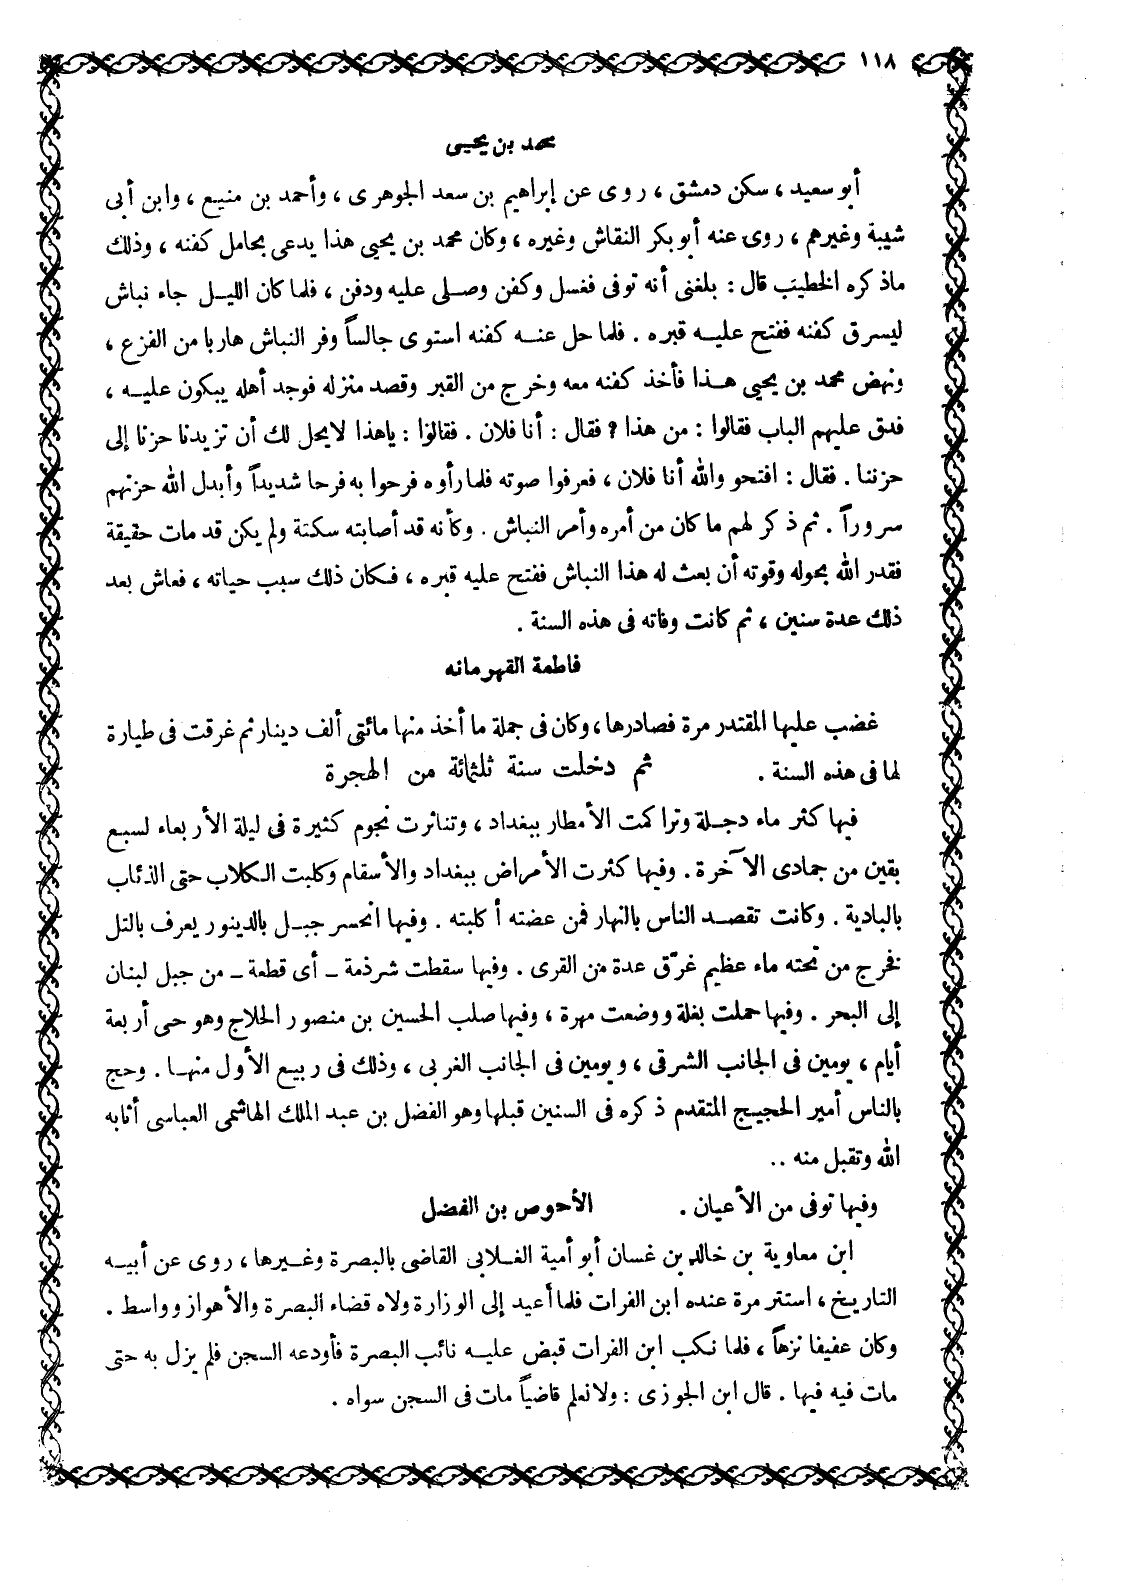 ١١٨
محمد بن يحيى
أبو سعيد ، سكن دمشق ، روى عن إبراهيم بن سعد الجوهرى ، وأحمد بن منيع ، وابن أبى
شيبة وغيرهم ، روى عنه أبو بكر النقاش وغيره ، وكان محمد بن يحيى هذا يدعى بحامل كفنه ، وذلك
ماذكره الخطيب قال : بلغنى أنه توفى فغسل وكفن وصلى عليه ودفن ، فلما كان الليل جاء نباش
ليسرق كفنه ففتح عليه قبره . فلما حل عنه كفنه استوى جالساً وفر النباش هاربا من الفزع ،
ونهض محمد بن يحيى هذا فأخذ كفنه معه وخرج من القبر وقصد منزله فوجد أهله يبكون عليه ،
فدق عليهم الباب فقالوا : من هذا ؟ فقال : أنا فلان . فقالوا : ياهذا لايحل لك أن تزيدنا حزنا إلى
حزننا . فقال : افتحو والله أنا فلان ، فعرفوا صوته فلما رأوه فرحوا به فرحا شديداً وأبدل الله حزنهم
سروراً . ثم ذكر لهم ما كان من أمره وأمر النباش . وكأنه قد أصابته سكتة ولم يكن قد مات حقيقة
فقدر الله بحوله وقوته أن بعث له هذا النباش ففتح عليه قبره ، فكان ذلك سبب حياته ، فعاش بعد
ذلك عدة سنين ، ثم كانت وفاته فى هذه السنة .
فاطمة القهرمانه
غضب عليها المقتدر مرة فصادرها ، وكان فى جملة ما أخذ منها مائتى ألف دينار ثم غرقت فى طيارة
لها فى هذه السنة . ثم دخلت سنة ثلثمائة من الهجرة
فيها كثر ماء دجلة وتراكمت الأمطار ببغداد ، وتناثرت نجوم كثيرة فى ليلة الأربعاء لسبع
بقين من جمادى الآخرة . وفيها كثرت الأمراض ببغداد والأسقام وكلبت الكلاب حتى الذئاب
بالبادية . وكانت تقصد الناس بالنهار فمن عضته أكلبته . وفيها انحسر جبل بالدينور يعرف بالتل
فخرج من تحته ماء عظيم غرّق عدة من القرى . وفيها سقطت شرذمة ـ أى قطعة ـ من جبل لبنان
إلى البحر . وفيها حملت بغلة ووضعت مهرة ، وفيها صلب الحسين بن منصور الحلاج وهو حى أربعة
أيام ، يومين فى الجانب الشرقى ، ويومين فى الجانب الغربى ، وذلك فى ربيع الأول منها . وحج
بالناس أمير الحجيج المتقدم ذكره فى السنين قبلها وهو الفضل بن عبد الملك الهاشمى العباسى أثابه
الله وتقبل منه ..
وفيها توفى من الأعيان . الأحوص بن الفضل
ابن معاوية بن خالد بن غسان أبو أمية الغلابى القاضى بالبصرة وغيرها ، روى عن أبيه
التاريخ ، استتر مرة عنده ابن الفرات فلما أعيد إلى الوزارة ولاه قضاء البصرة والأهواز وواسط .
وكان عفيفا نزهاً ، فلما نكب ابن الفرات قبض عليه نائب البصرة فأودعه السجن فلم يزل به حتى
مات فيه فيها . قال ابن الجوزى : ولا نعلم قاضياً مات فى السجن سواه .